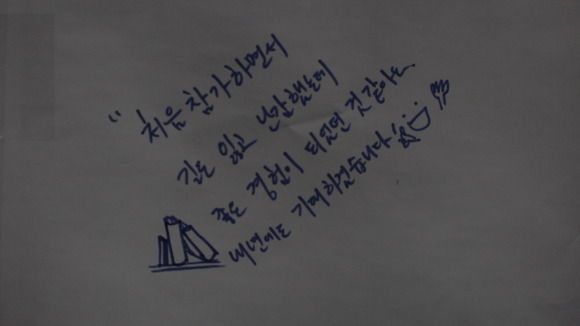 " 처음 참가하면서
길도 잃고 난감했는데
좋은 경험이 되었던 것 같아요.
내년에도 기대하겠습니다!